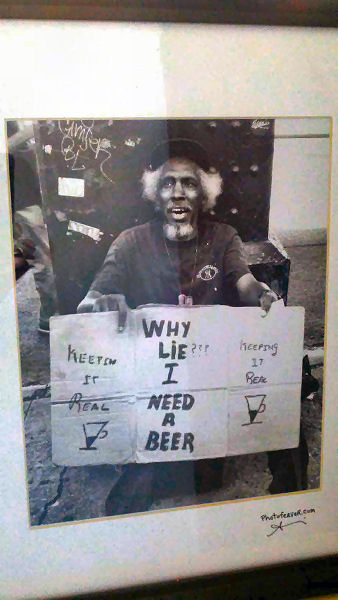 KEEPIN
IT
REAL
WHY
LIE???
I
NEED
A
BEER
KEEPING
IT
REAL
PhotoFeaver.com